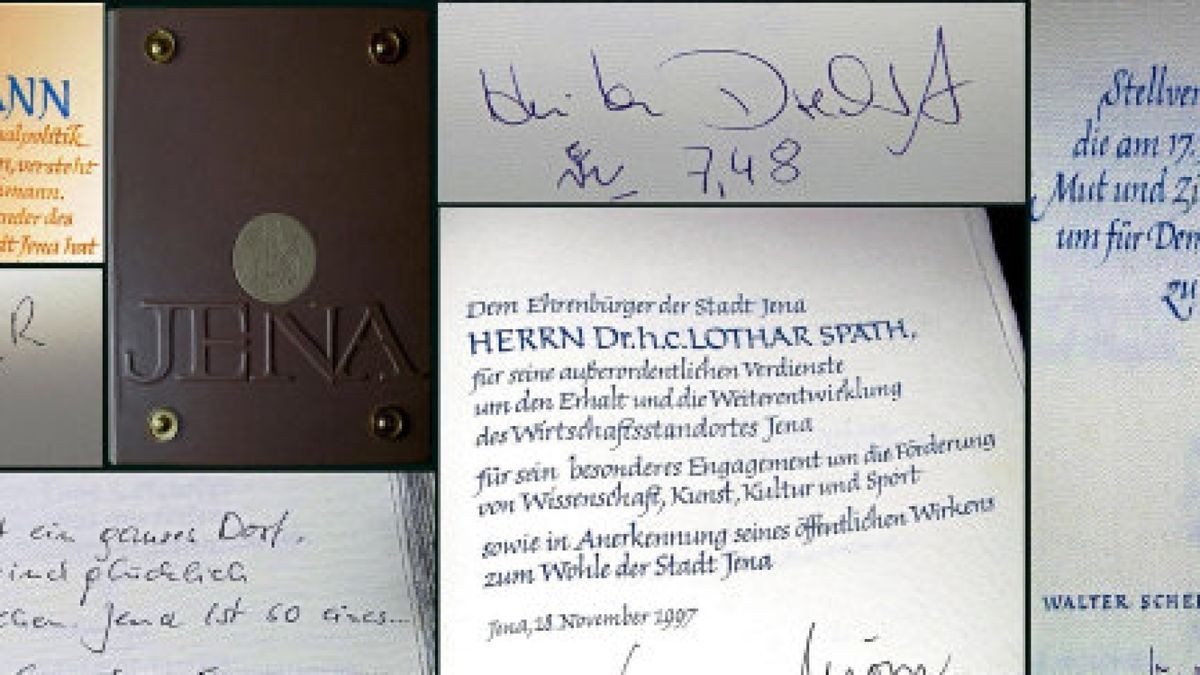 ANN
alpolitik
n, versteht
mann.
nder des
dt Jena hat
R
JENA
Heike Drechsler
7,48
Dem Ehrenbürger der Stadt Jena
HERRN Dr.h.c.LOTHAR SPÄTH,
für seine außerordentlichen Verdienste
um den Erhalt und die Weiterentwicklung
des Wirtschaftsstandortes Jena
für sein besonderes Engagement um die Förderung
von Wissenschaft, Kunst, Kultur und Sport
sowie in Anerkennung seines öffentlichen Wirkens
zum Wohle der Stadt Jena
Jena, 18. November 1997
ein ganzes Dorf.
sind glücklich
Jena ist so eines...
Stellver
die am 17.
Mut und Zi
um für Dem
zu
WALTER SCHE